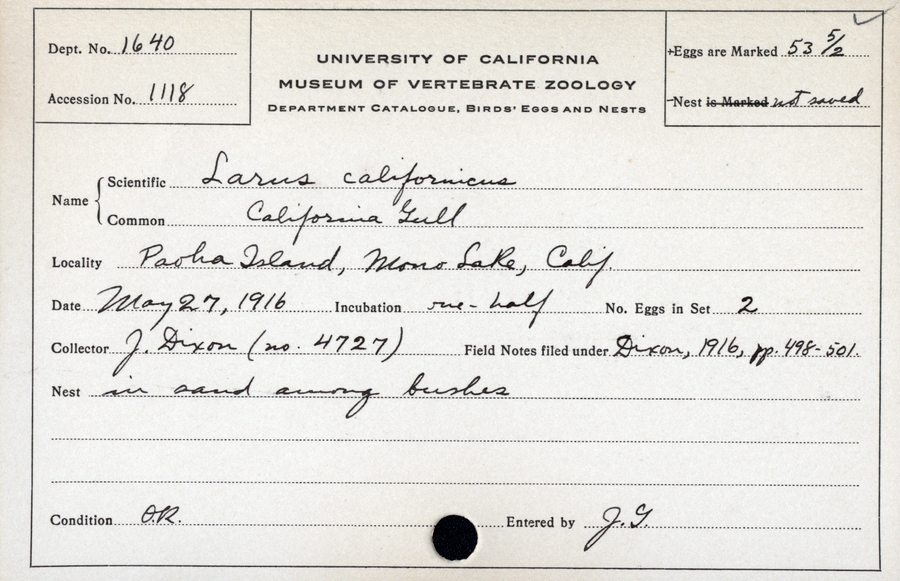 Dept. No. 1640
Accession No. 1118
UNIVERSITY OF CALIFORNIA
MUSEUM OF VERTEBRATE ZOOLOGY
DEPARTMENT CATALOGUE, BIRDS' EGGS AND NESTS
+Eggs are Marked 53 5/2
-Nest is Marked not saved
Name
Scientific Larus californicus
Common California Gull
Locality Paoha Island, Mono Lake, Calif.
Date May 27, 1916 Incubation one-half No. Eggs in Set 2
Collector J. Dixon (no. 4727) Field Notes filed under Dixon, 1916, pp. 498-501.
Nest in sand among bushes
Condition O.K. Entered by J.G.